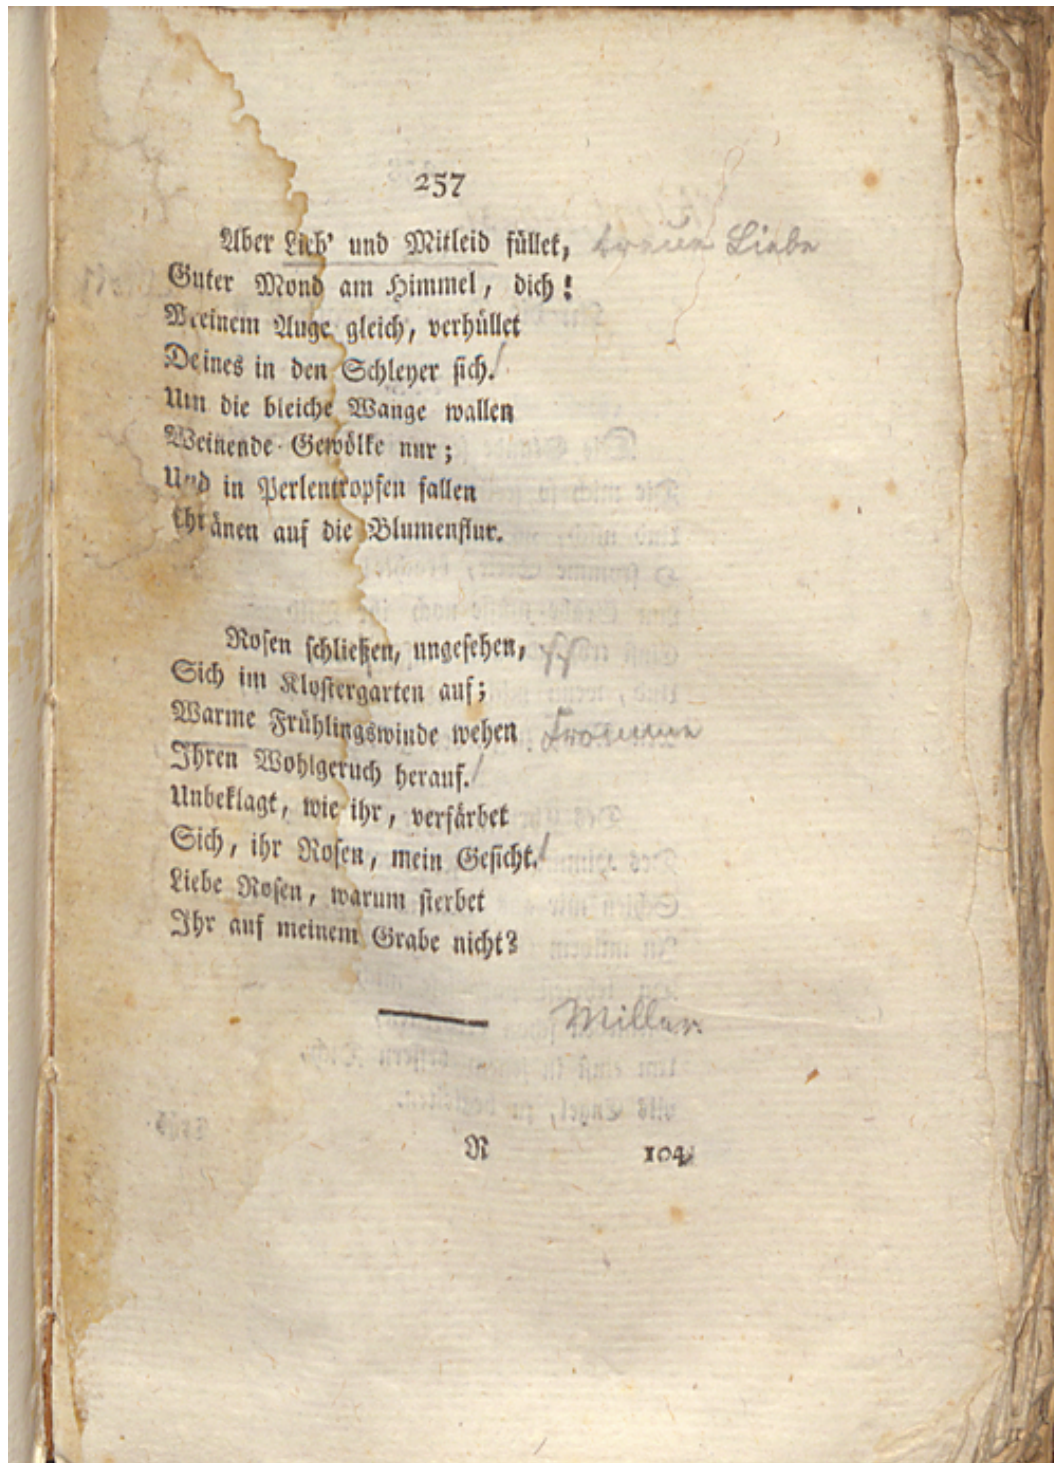 257
Aber Lieb' und Mitleid füllet, treue Liebe
Guter Mond am Himmel, dich!
Meinem Auge gleich, verhüllet
Deines in den Schleyer sich.
Um die bleiche Wange wallen
Weinende Gewölke nur;
Und in Perlentropfen fallen
Thränen auf die Blumenflur.
Rosen schließen, ungesehen,
Sich im Klostergarten auf;
Warme Frühlingswinde wehen Fromme
Ihren Wohlgeruch herauf.
Unbeklagt, wie ihr, verfärbet
Sich, ihr Rosen, mein Gesicht.
Liebe Rosen, warum sterbet
Ihr auf meinem Grabe nicht?
Miller.
R 104